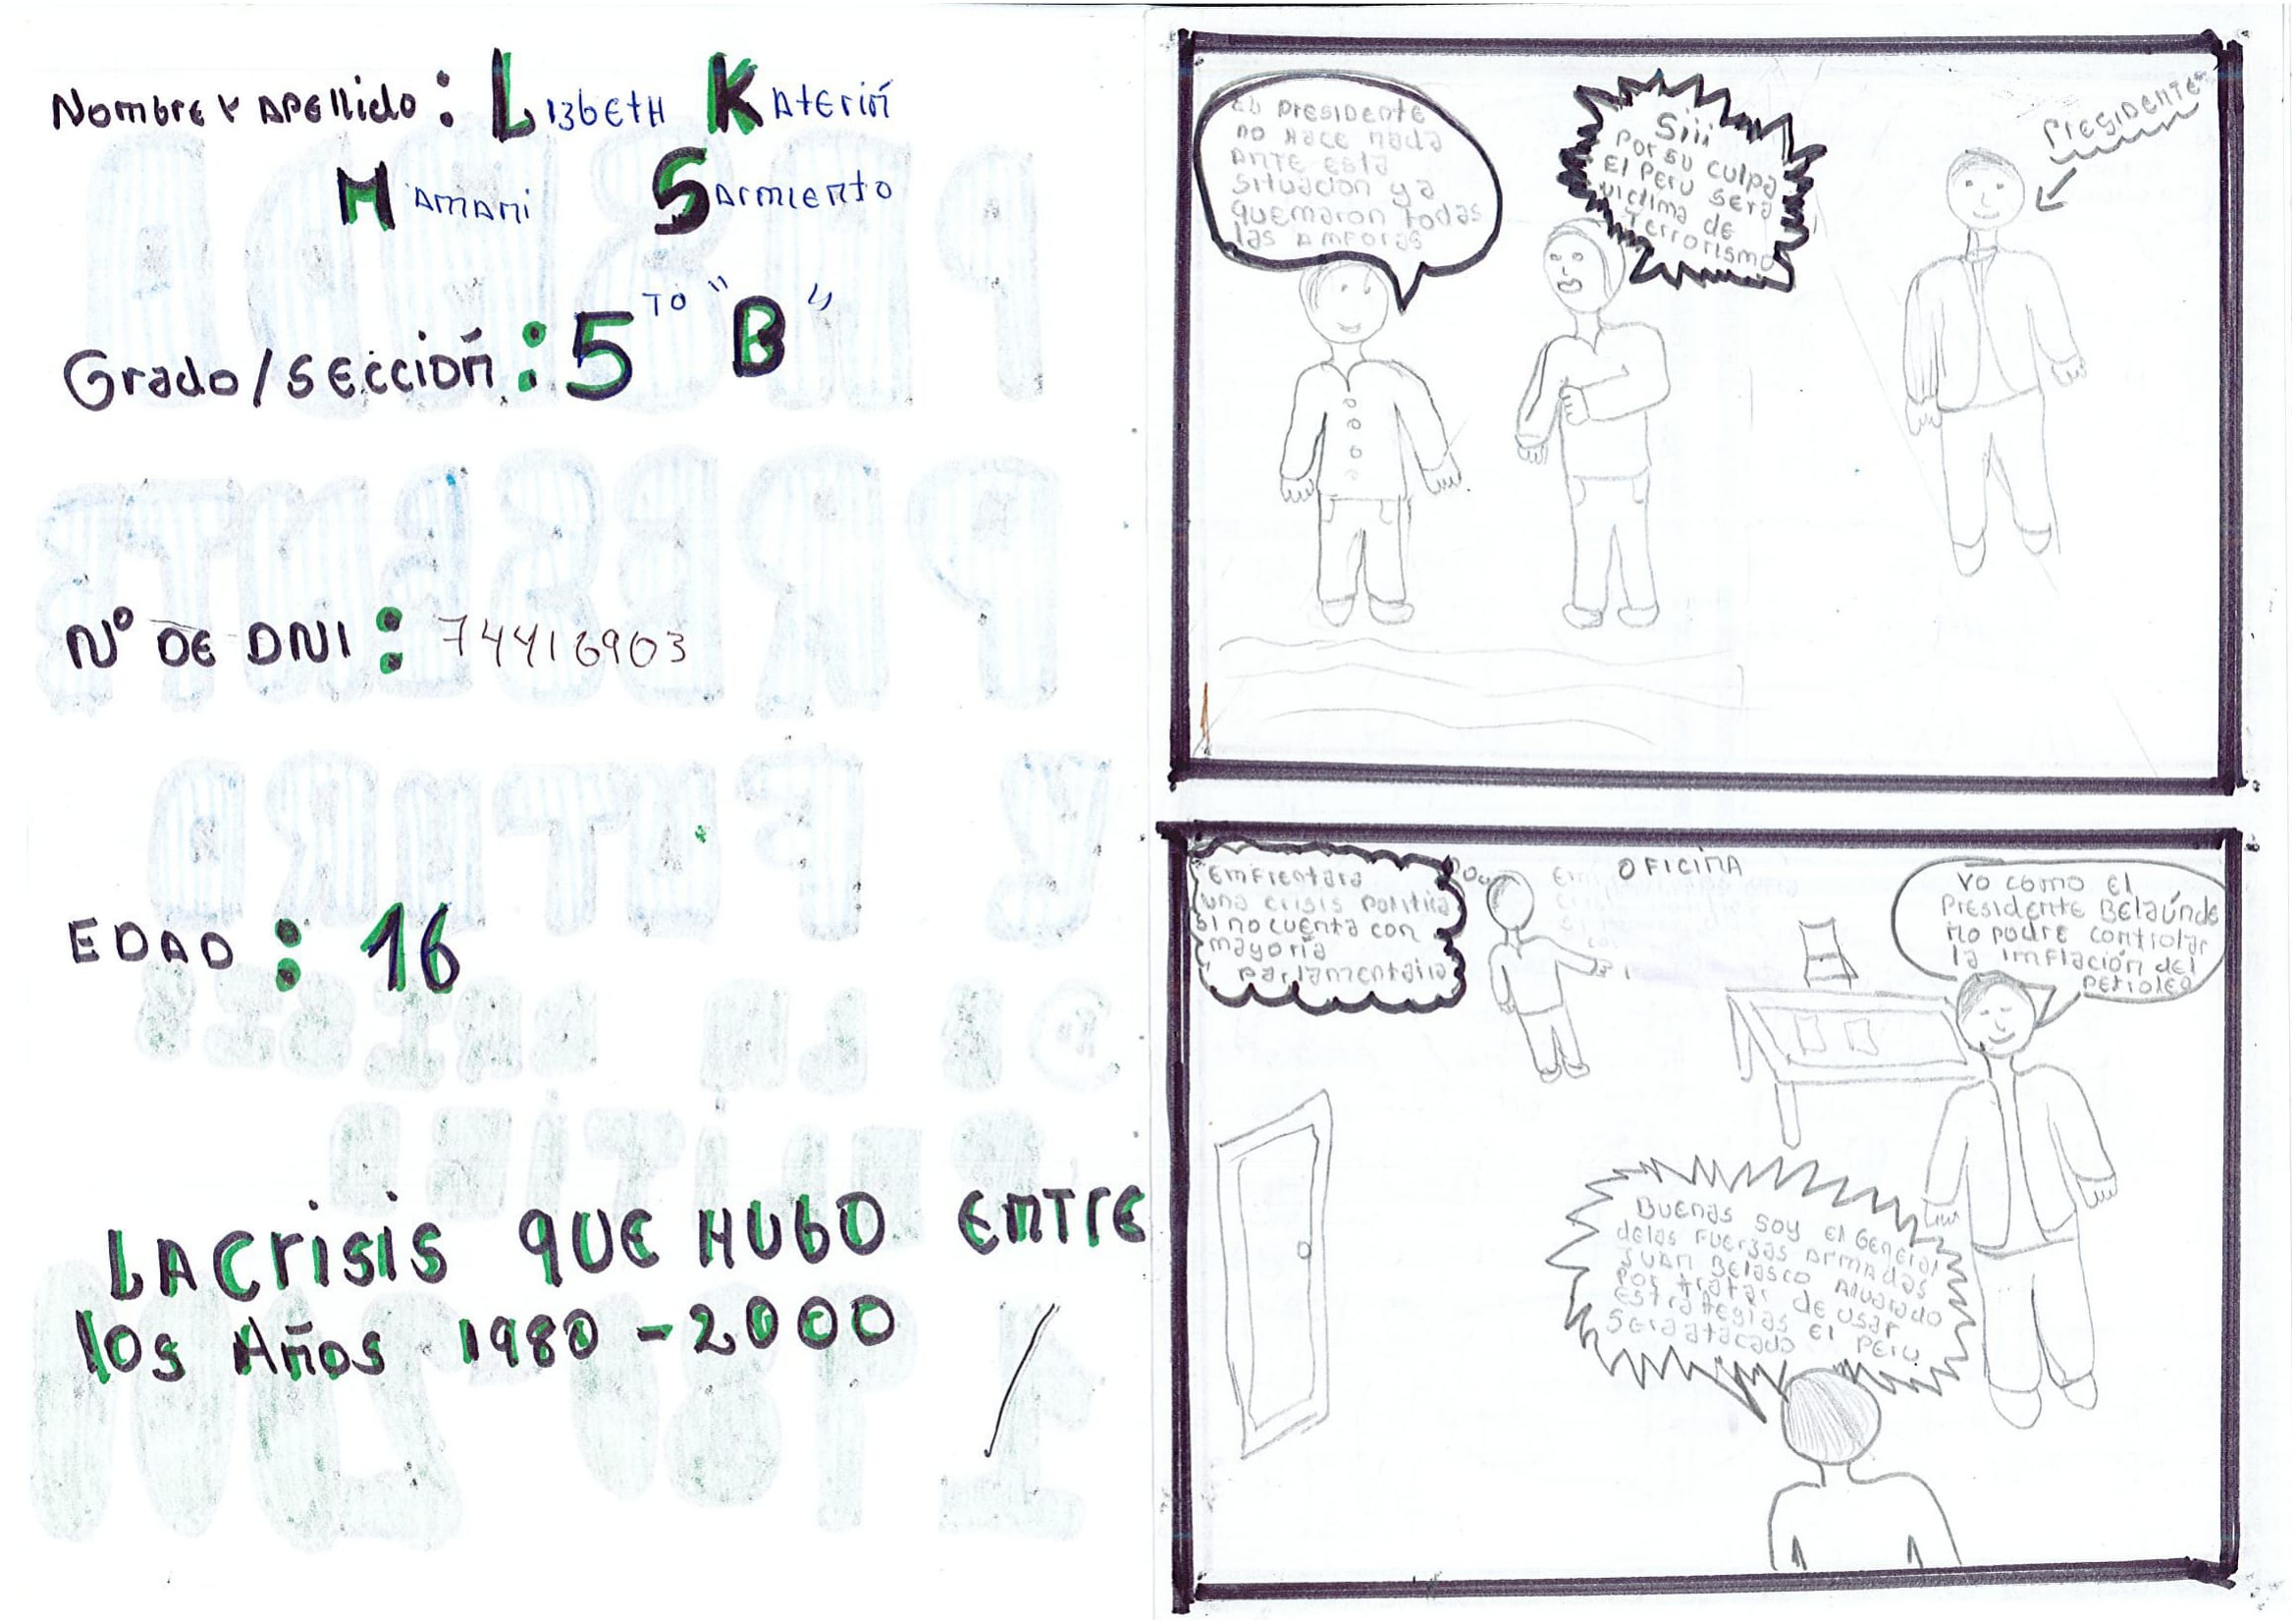 Nombre y Apellido : Lizbeth Katerin
Mamani Sarmiento
Grado/sección : 5to "B"
N° DE DNI : 74416903
EDAD : 16
LA Crisis que hubo entre
los Años 1980 - 2000
El presidente
no hace nada
ante esta
situacion ya
quemaron todas
las amforas
Siii
por su culpa
El Peru sera
victima de
Terrorismo
Presidente
Emfrentara
una crisis politica
si no cuenta con
mayoria
parlamentaria
OFICINA
Yo como el
Presidente Belaúnde
no podre controlar
la imflación del
petroleo
Buenas soy el General
delas Fuerzas Armadas
Juan Belasco Alvarado
por tratar de usar
estrategias
sera atacado el Peru